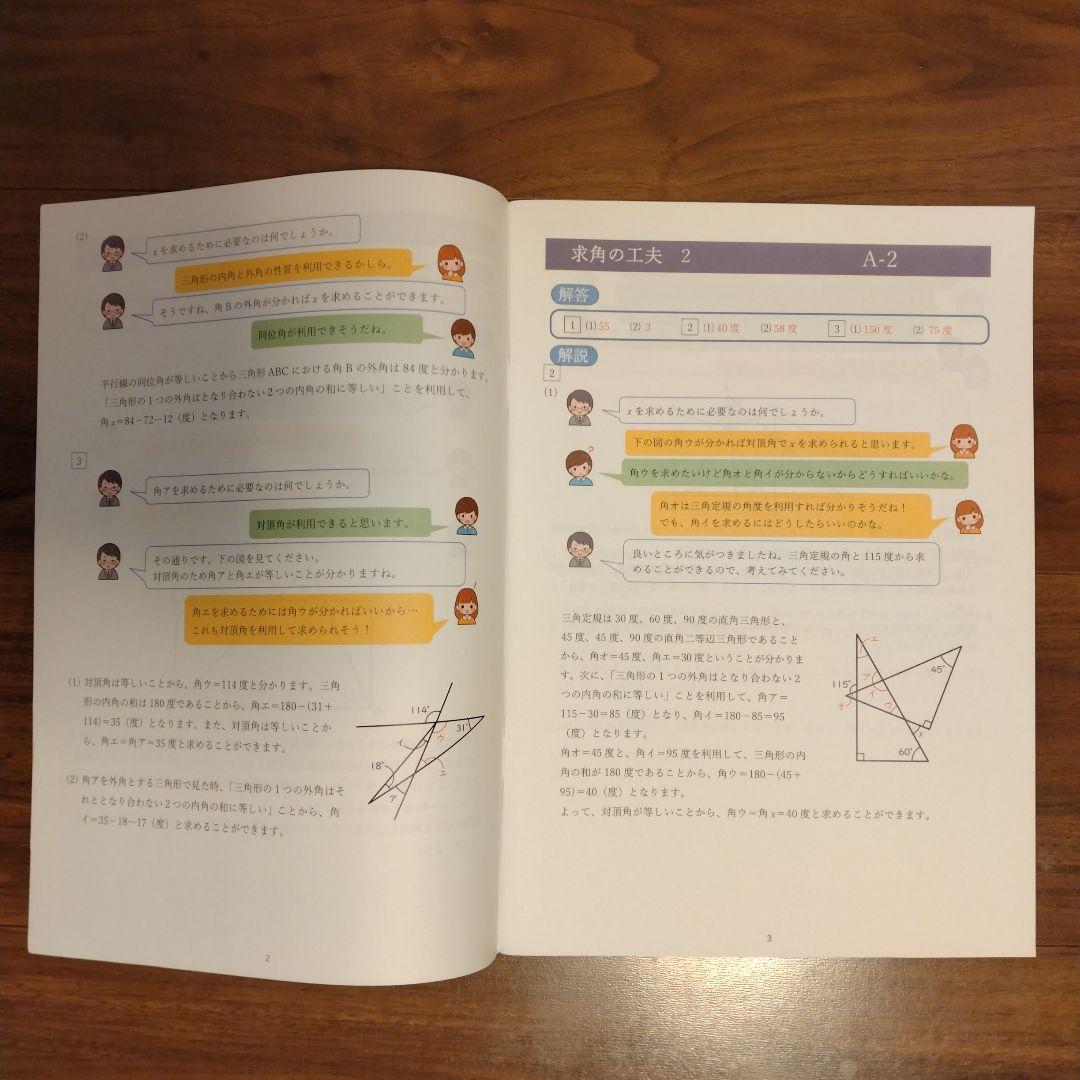 (2)
xを求めるために必要なのは何でしょうか。
三角形の内角と外角の性質を利用できるかしら。
そうですね、角Bの外角が分かればxを求めることができます。
同位角が利用できそうだね。
平行線の同位角が等しいことから三角形ABCにおける角Bの外角は84度と分かります。
「三角形の1つの外角はとなり合わない2つの内角の和に等しい」ことを利用して、
角x=84−72=12(度)となります。
3
角アを求めるために必要なのは何でしょうか。
対頂角が利用できると思います。
その通りです。下の図を見てください。
対頂角のため角アと角エが等しいことが分かりますね。
角エを求めるためには角ウが分かればいいから…
これも対頂角を利用して求められそう！
(1) 対頂角は等しいことから、角ウ=114度と分かります。三角
形の内角の和は180度であることから、角エ=180−(31+
114)=35(度)となります。また、対頂角は等しいことか
ら、角エ=角ア=35度と求めることができます。
114°
31°
ウ
イ
エ
18°
ア
(2) 角アを外角とする三角形で見た時、「三角形の1つの外角はそ
れととなり合わない2つの内角の和に等しい」ことから、角
イ=35−18=17(度)と求めることができます。
2
求角の工夫 2 A-2
解答
1 (1) 55 (2) 3 2 (1) 40度 (2) 58度 3 (1) 150度 (2) 75度
解説
2
(1)
xを求めるために必要なのは何でしょうか。
下の図の角ウが分かれば対頂角でxを求められると思います。
?
角ウを求めたいけど角オと角イが分からないからどうすればいいかな。
角オは三角定規の角度を利用すれば分かりそうだね！
でも、角イを求めるにはどうしたらいいのかな。
良いところに気がつきましたね。三角定規の角と115度から求
めることができるので、考えてみてください。
三角定規は30度、60度、90度の直角三角形と、
45度、45度、90度の直角二等辺三角形であること
から、角オ=45度、角エ=30度ということが分かりま
す。次に、「三角形の1つの外角はとなり合わない2
つの内角の和に等しい」ことを利用して、角ア=
115−30=85(度)となり、角イ=180−85=95
(度)となります。
角オ=45度と、角イ=95度を利用して、三角形の内
角の和が180度であることから、角ウ=180−(45+
95)=40(度)となります。
よって、対頂角が等しいことから、角ウ=角x=40度と求めることができます。
エ
45°
115°
ア
イ
オ
ウ
x
60°
3